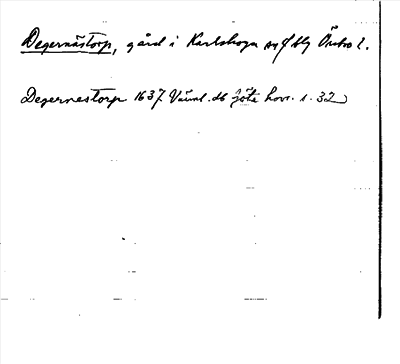 Degernästorp, gård i Karlskoga sn, Örebro l.
Degernestorp 1637 Värml. db Göta hovr. s. 32